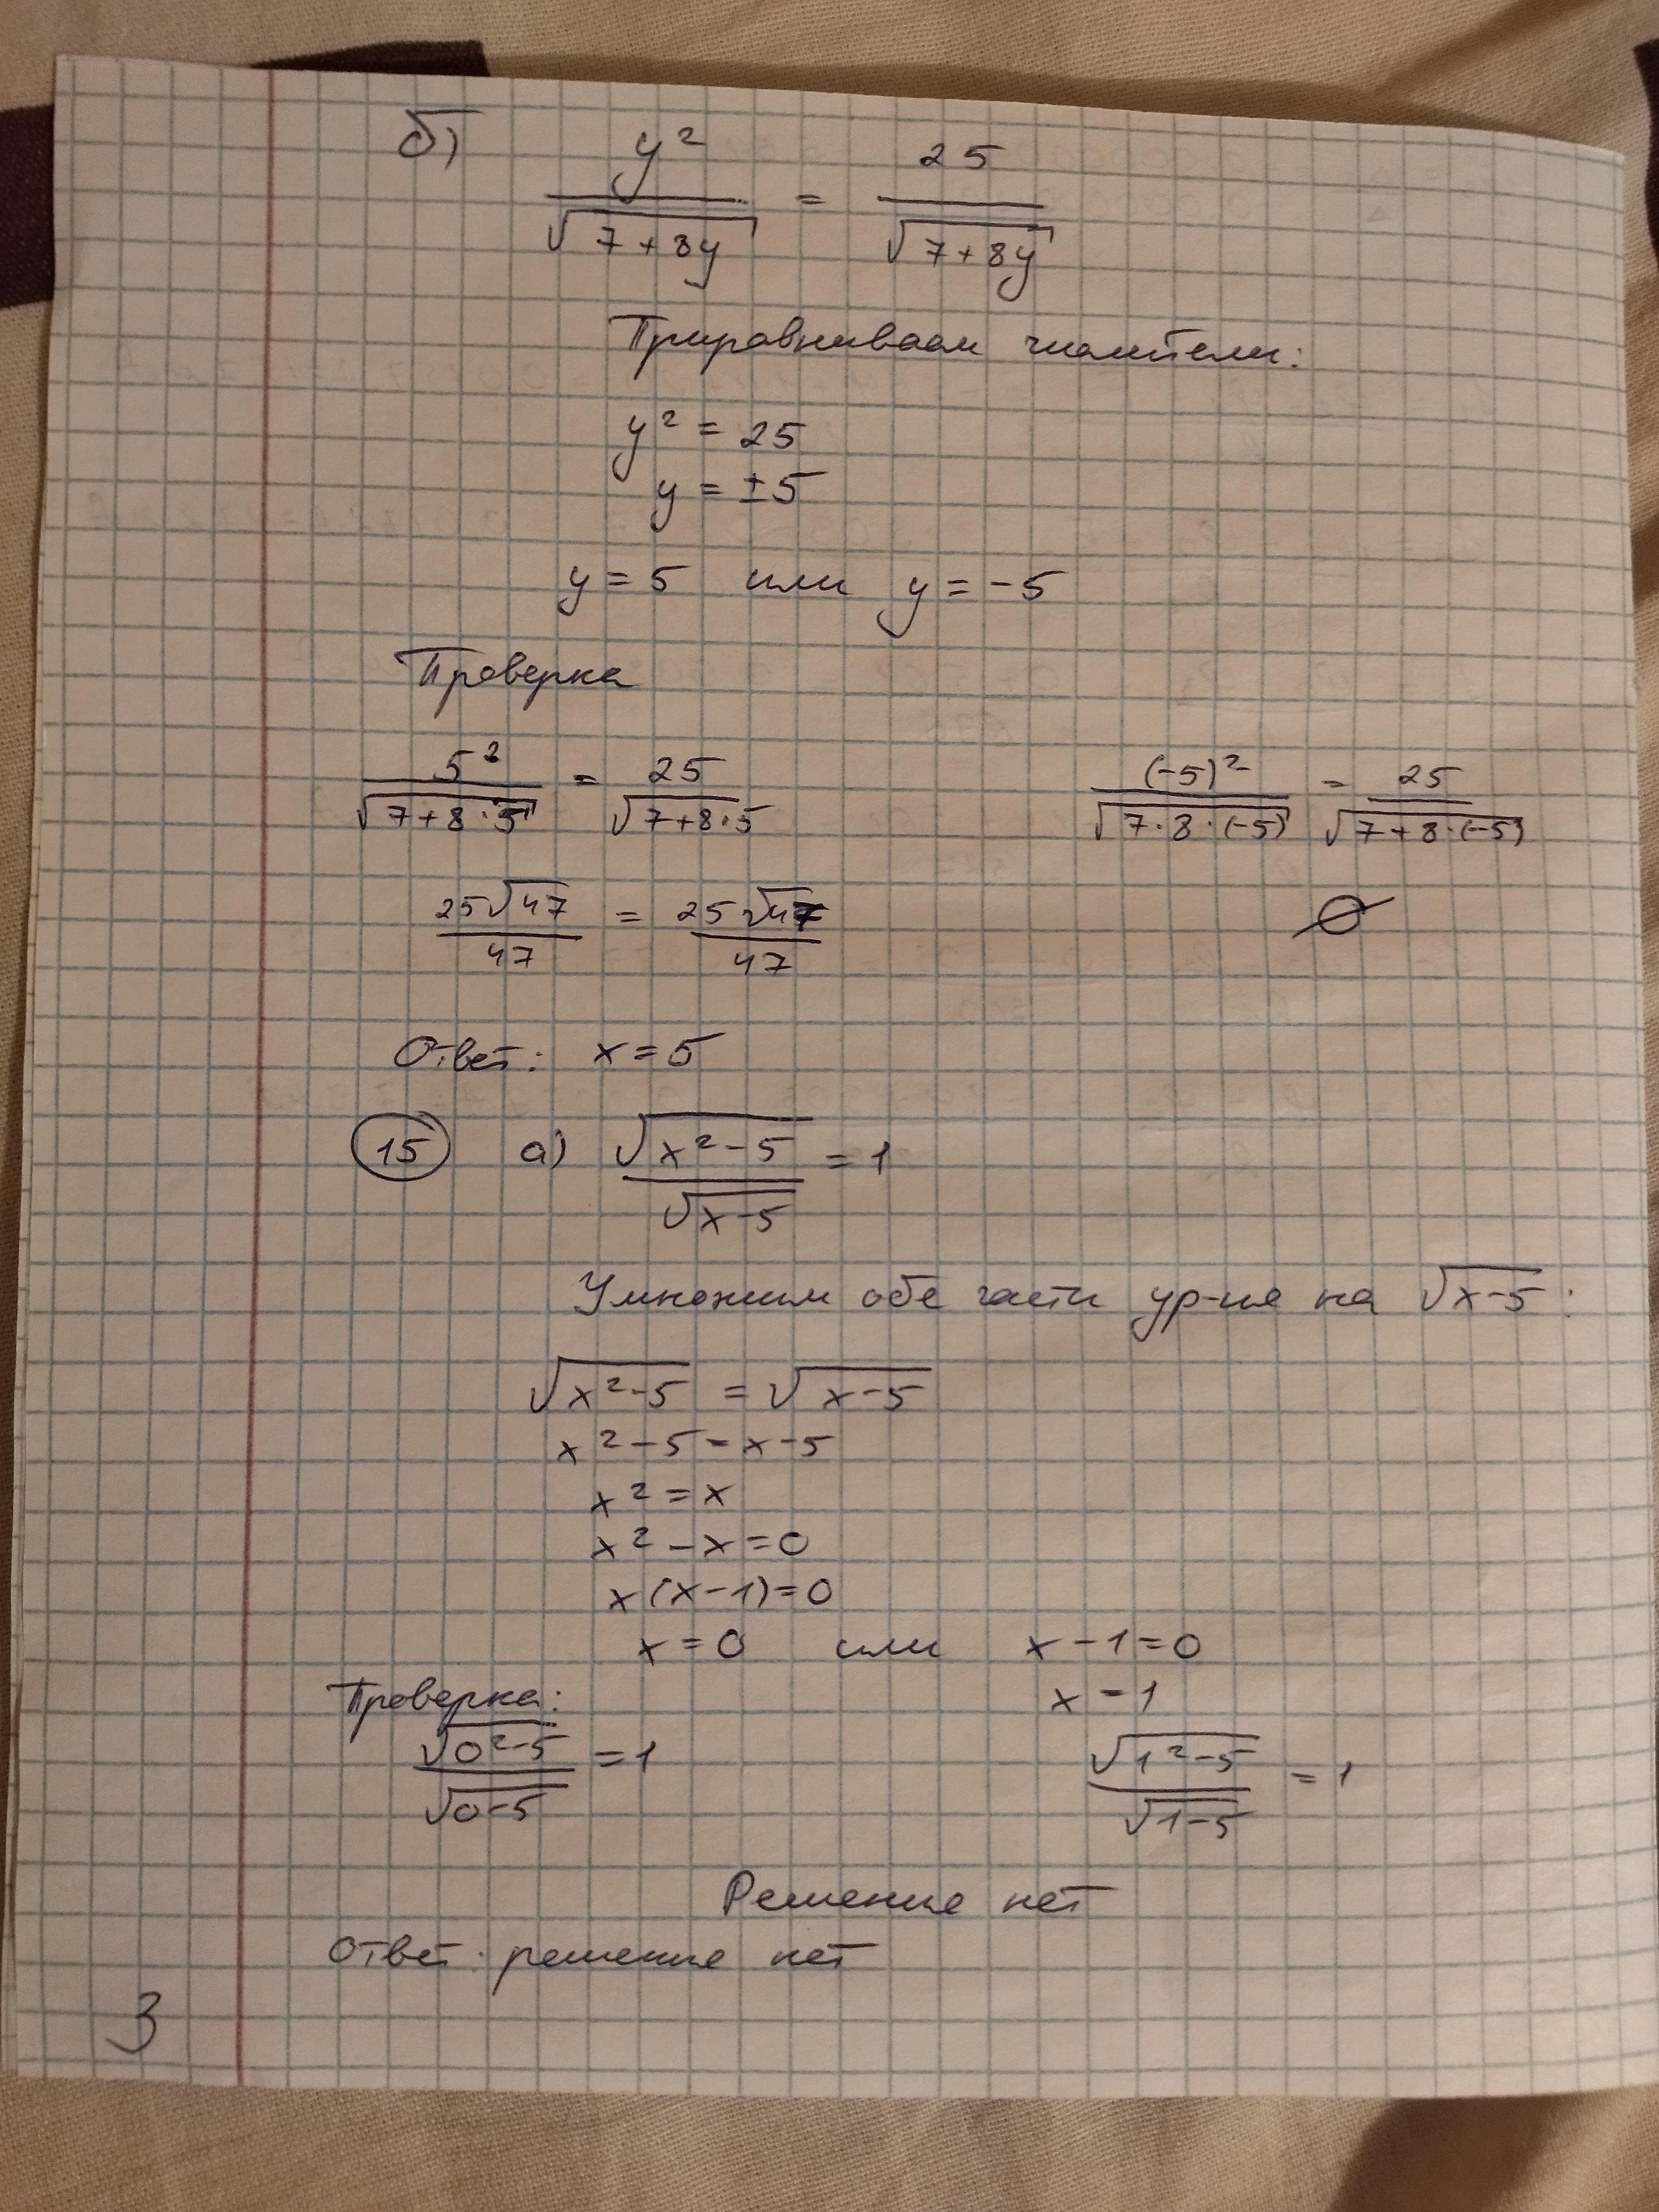 б) y² / √(7+8y) = 25 / √(7+8y)
Приравниваем числители:
y² = 25
y = ±5
y = 5 или y = -5
Проверка
5² / √(7+8·5) = 25 / √(7+8·5) (-5)² / √(7·8·(-5)) = 25 / √(7+8·(-5))
25√47 / 47 = 25√47 / 47 ∅
Ответ: x = 5
15 а) √(x²-5) / √(x-5) = 1
Умножим обе части ур-ия на √(x-5):
√(x²-5) = √(x-5)
x²-5 = x-5
x² = x
x² - x = 0
x(x-1) = 0
x = 0 или x - 1 = 0
Проверка: x = 1
√(0²-5) / √(0-5) = 1 √(1²-5) / √(1-5) = 1
Решение нет
Ответ: решение нет
3